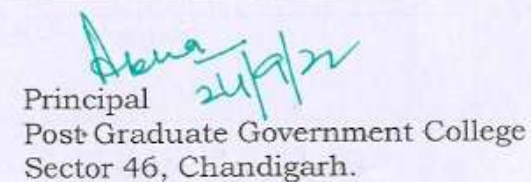 24/9/22
Principal
Post Graduate Government College
Sector 46, Chandigarh.